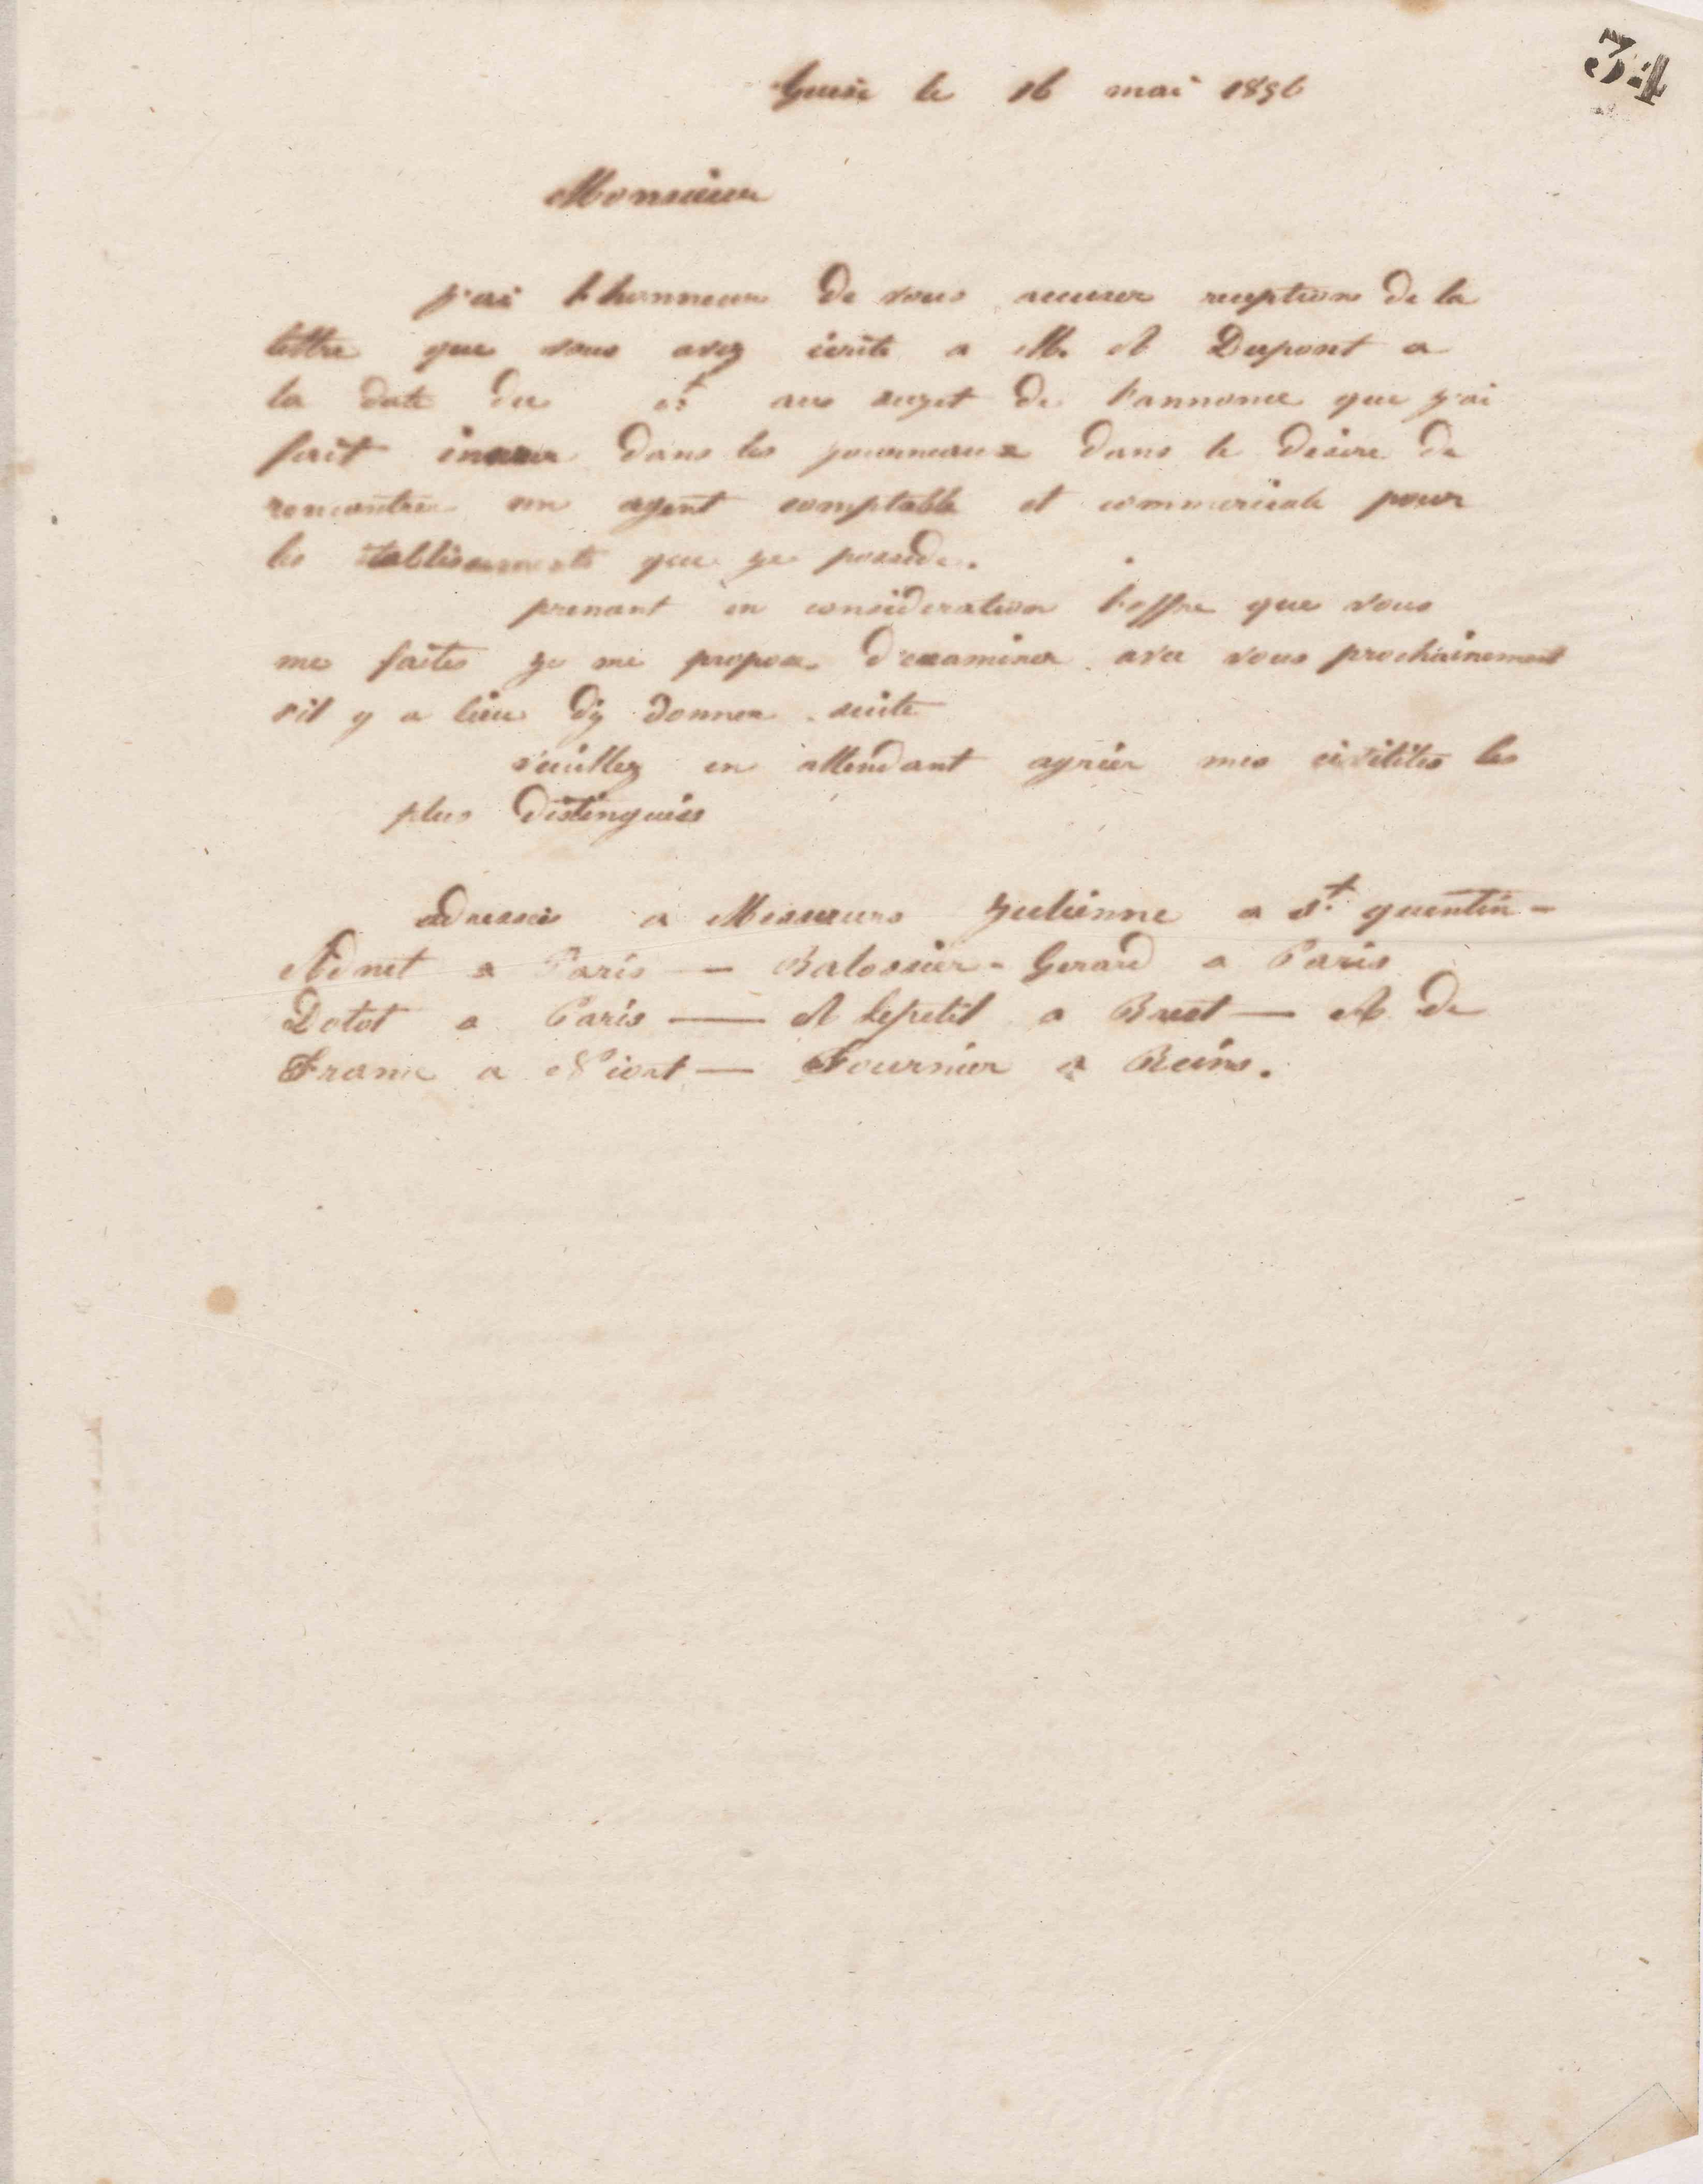 34
Guise le 16 mai 1856
Monsieur
j'ai l'honneur de vous accuser reception de la
lettre que vous avez écrite a M. A Dupont a
la date du ct au sujet de l'annonce que j'ai
fait inserer dans les journeaux dans le desire de
rencontrer un agent comptable et commerciale pour
les etablissements que je possede.
prenant en consideration l'offre que vous
me faites je me propose d'examiner avec vous prochainement
s'il y a lieu d'y donner suite
veuillez en attendant agréer mes civilités les
plus distinguées
adressée a Messieurs Julienne a St. quentin -
Adnet a Paris — Balossier - Gerard a Paris
Dotot a Paris — A Lepetit a Brest — A de
Franc a Niort — Fournier a Reims.